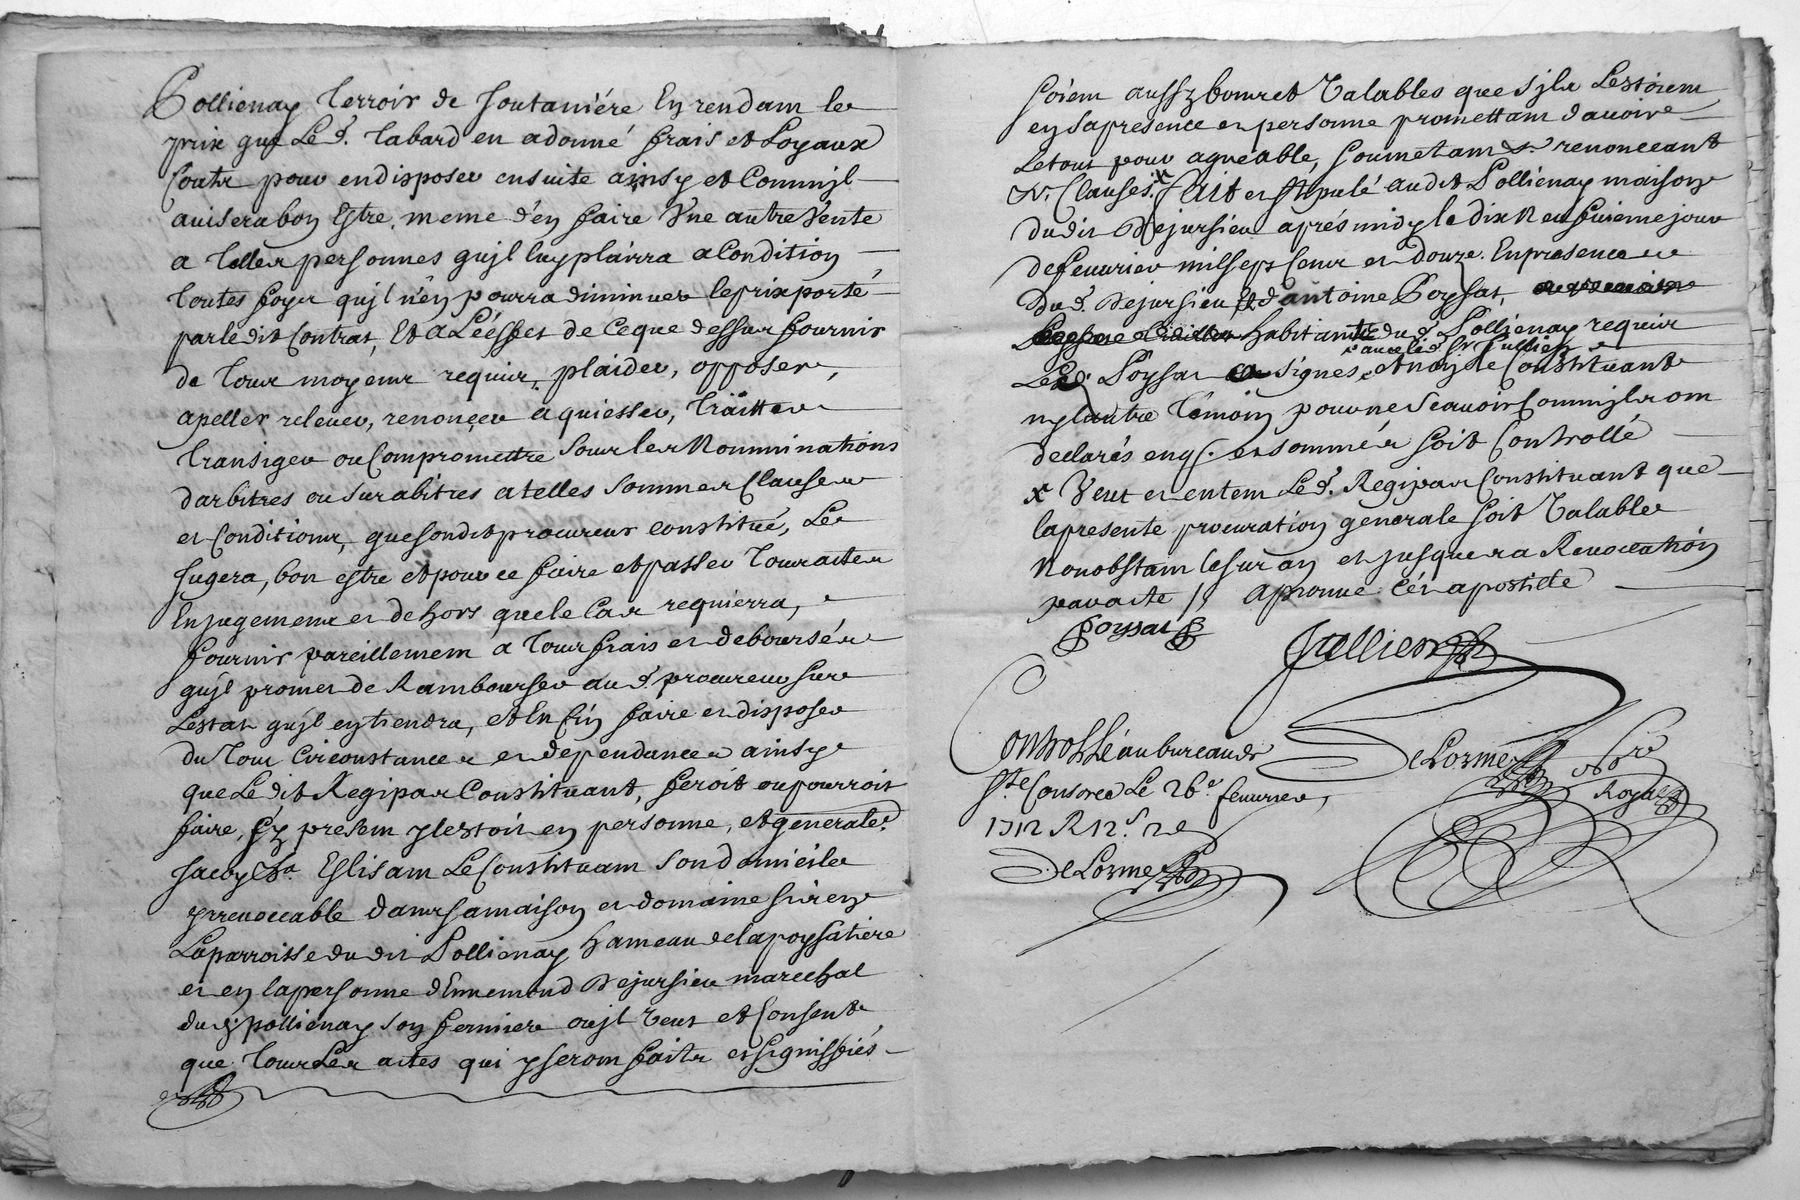 Pollienay Terroir de fontaniére En rendant les
prix que Le d. Tabard en a donné frais et Loyaux
Couts pour en disposer ensuite ainsy et Comm jl
avisera bon Estre, meme d'en faire Vne autre Vente
a telles personnes qu'jl luy plairra a Condition
toutes foys qu'jl n'en pourra diminuer le prix porté
par le dit Contrat, Et a L'éffet de Ce que dessus fournir
de tous moyens requerir, plaider, opposer,
apeller relever, renonçer aquiesser, traitter
transiger ou Compromettre sous les Nomminations
d'arbitres ou surabitres a telles sommes Clauses
et Conditions, que son dit procureur constitué, Le
jugera, bon estre et pour ce faire et passer tous actes
En jugement et dehors que le Cas requierra,
fournir pareillement a tous frais et deboursés
qu'jl promet de Rambourser au d. procureur sur
L'estat qu'jl en tiendra, et En fin faire et disposer
du tout Circonstances et dependances ainsy
que Le dit Regipas Constituant, feroit ou pourroit
faire, sy present y estoit en personne, et generale.
Eslisant Le Constituant son domicile
yrrevoccable dans sa maison et domaine sis en
La parroisse du dit Pollienay hameau de la poysatiere
et en la personne d'Ennemond Dejursieu marechal
du d. pollienay son fermier ou jl veut et Consent
que tous Les actes qui y seront faits et signiffiés
soient aussy bons et Valables que s'jls L'estoient
en sa presence et personne promettant d'avoir
le tout pour agreable, soumettant & renonceant
& Clauses. x fait et stipulé au dit Pollienay maison
du dit Dejursieu aprés midy le dix Neufuieme jour
de feuurier mil sept Cent et douze. En presence
du d. Dejursieu Et d'antoine Poysat,
habitants du d. Pollienay requis
Le d. Poysat a signés avec le d. Sr Jullien et non le Constituant
ny l'autre témoin pour ne scauoir Comm jls ont
declarés enq. et sommés soit Controllé
x Veut et entent Le d. Regipas Constituant que
la presente procuration generale soit Valable
Nonobstant le sur an et jusques a Revoccation
par acte // aprouué Cét apostille
Poysat
Jullien
Controllé au bureau de
Ste Consorce Le 26e feuurier,
1712 R 12s
DeLorme
DeLorme Nore
Royal